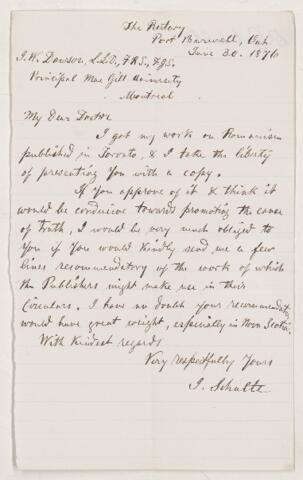 The Rectory
Port Burwell, Ont
June 30. 1876
J. W. Dawson, L.L.D., F.R.S., F.G.S.
Principal Mac Gill University
Montreal
My Dear Doctor
I got my work on Romanism
published in Toronto, & I take the liberty
of presenting You with a copy.
If You approve of it & think it
would be conducive towards promoting the cause
of truth, I would be very much obliged to
You if You would kindly send me a few
lines recommendatory of the work of which
the Publishers might make use in their
Circulars. I have no doubt your recommendatn
would have great weight, especially in Nova Scotia.
With Kindest regards
Very respectfully Yours
J. Schulte